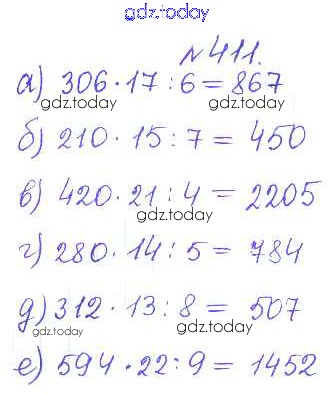 gdz.today
№411.
а) 306·17:6=867
gdz.today
б) 210·15:7=450
gdz.today
в) 420·21:4=2205
gdz.today
г) 280·14:5=784
gdz.today
д) 312·13:8=507
gdz.today gdz.today
е) 594·22:9=1452